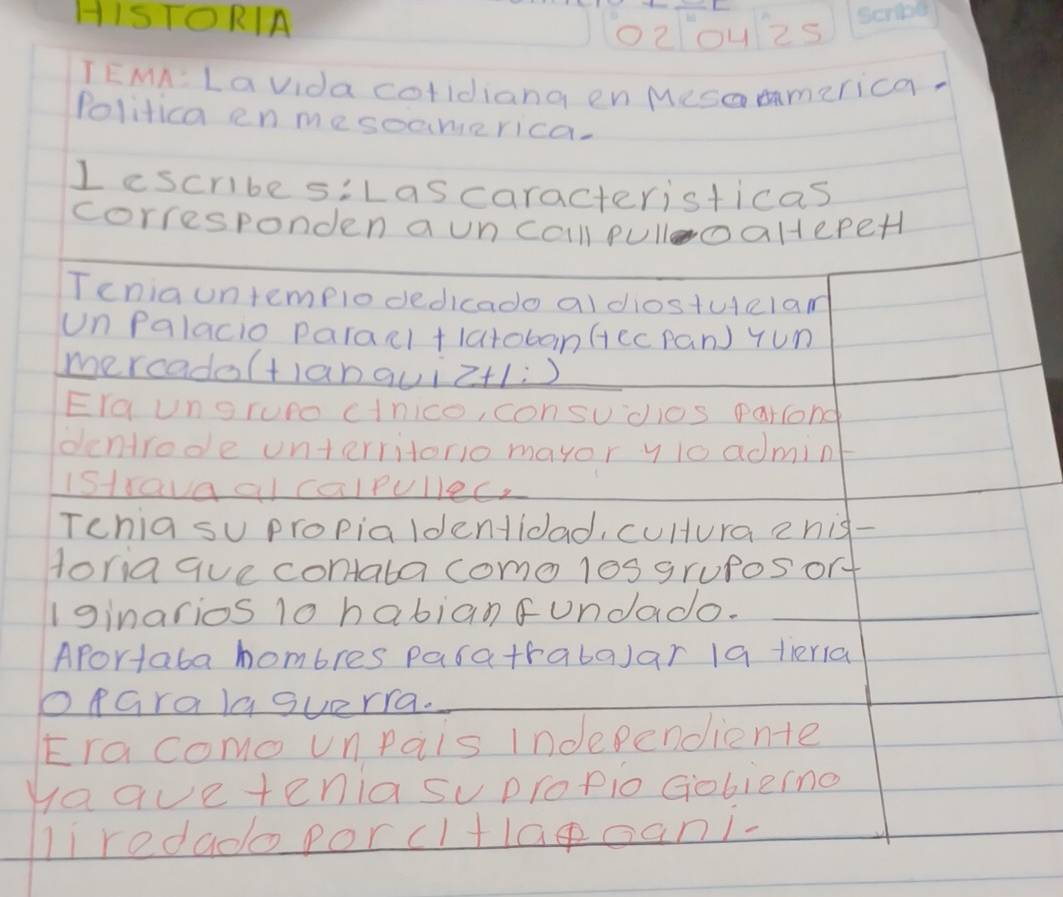 HISTORIA
02 04 25 Scribe
TEMA: La vida cotidiana en Mesoamerica.
Politica en mesoamerica.
1 escribe s: Las caracteristicas
corresponden a un callpulli o altepetl
Tenia un templo dedicado al dios tutelar
un palacio para el tlatoban (teccpan) y un
mercado (tianquiztli:)
Era un grupo etnico, con su dios patrono
dentro de un territorio mayor y lo admin
istrava al calpullec.
Tenia su propia identidad, cultura e his-
toria que contaba como los grupos or
iginarios lo habian fundado.
Aportaba hombres para trabajar la tierra
o para la guerra.
Era como un pais independiente
ya que tenia su propio Gobierno
liredado por el tlapoani.